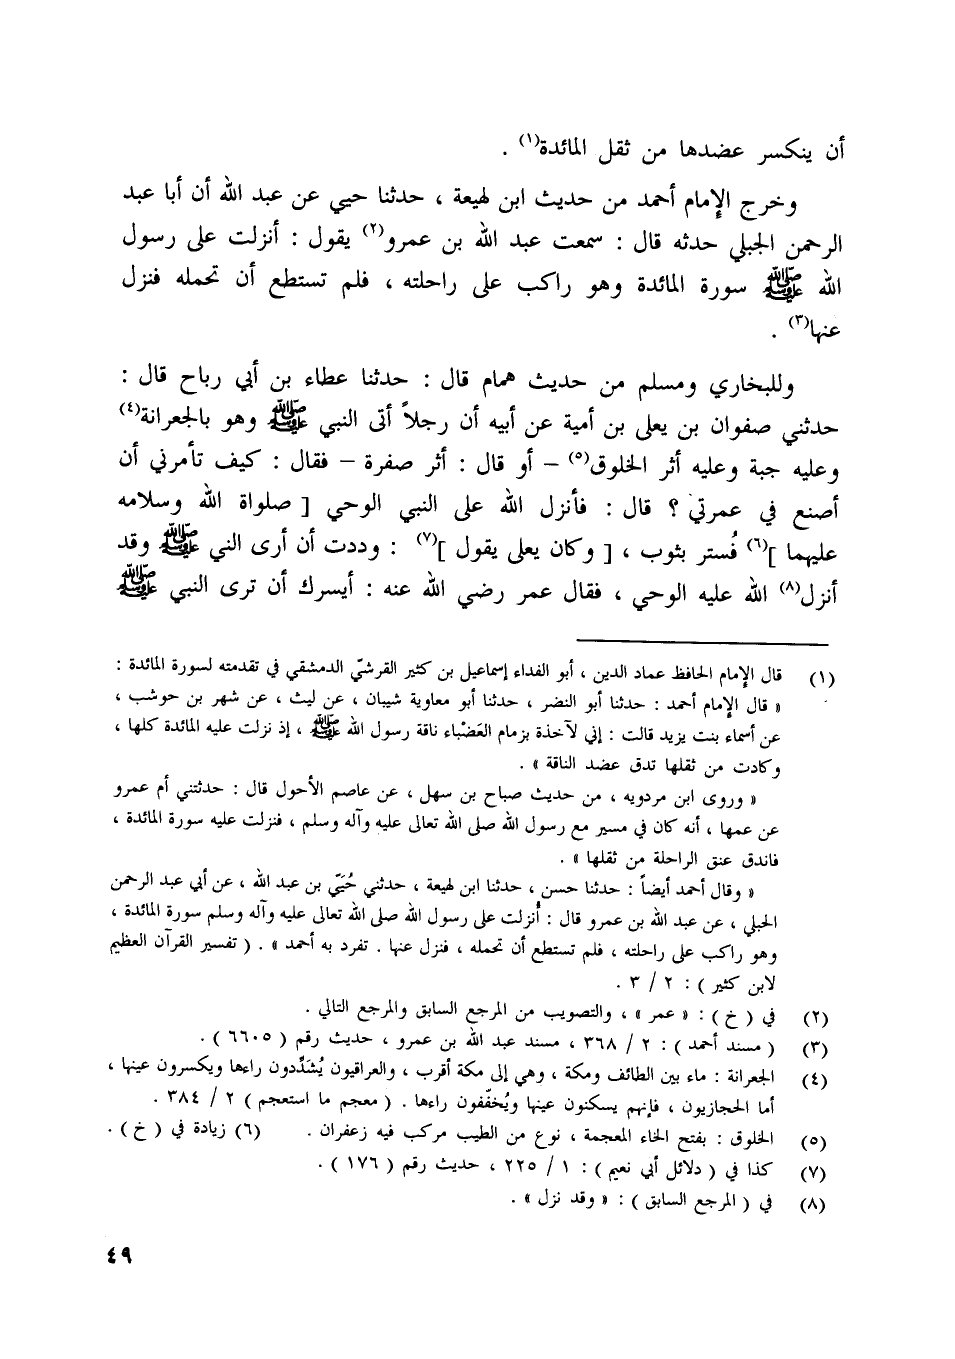 أن ينكسر عضدها من ثقل المائدة(١) .
وخرج الإمام أحمد من حديث ابن لهيعة ، حدثنا حيي عن عبد الله أن أبا عبد
الرحمن الجبلي حدثه قال : سمعت عبد الله بن عمرو(٢) يقول : أنزلت على رسول
الله ﷺ سورة المائدة وهو راكب على راحلته ، فلم تستطع أن تحمله فنزل
عنها(٣) .
وللبخاري ومسلم من حديث همام قال : حدثنا عطاء بن أبي رباح قال :
حدثني صفوان بن يعلى بن أمية عن أبيه أن رجلاً أتى النبي ﷺ وهو بالجعرانة(٤)
وعليه جبة وعليه أثر الخلوق(٥) – أو قال : أثر صفرة – فقال : كيف تأمرني أن
أصنع في عمرتي ؟ قال : فأنزل الله على النبي الوحي [ صلواة الله وسلامه
عليهما ](٦) فُستر بثوب ، [ وكان يعلى يقول ](٧) : وددت أن أرى النبي ﷺ وقد
أنزل(٨) الله عليه الوحي ، فقال عمر رضي الله عنه : أيسرك أن ترى النبي ﷺ
(١) قال الإمام الحافظ عماد الدين ، أبو الفداء إسماعيل بن كثير القرشيّ الدمشقي في تقدمته لسورة المائدة :
« قال الإمام أحمد : حدثنا أبو النضر ، حدثنا أبو معاوية شيبان ، عن ليث ، عن شهر بن حوشب ،
عن أسماء بنت يزيد قالت : إني لآخذة بزمام العَضْباء ناقة رسول الله ﷺ ، إذ نزلت عليه المائدة كلها ،
وكادت من ثقلها تدق عضد الناقة » .
« وروى ابن مردويه ، من حديث صباح بن سهل ، عن عاصم الأحول قال : حدثتني أم عمرو
عن عمها ، أنه كان في مسير مع رسول الله صلى الله تعالى عليه وآله وسلم ، فنزلت عليه سورة المائدة ،
فاندق عنق الراحلة من ثقلها » .
« وقال أحمد أيضاً : حدثنا حسن ، حدثنا ابن لهيعة ، حدثني حُيَيّ بن عبد الله ، عن أبي عبد الرحمن
الحبلي ، عن عبد الله بن عمرو قال : أُنزلت على رسول الله صلى الله تعالى عليه وآله وسلم سورة المائدة ،
وهو راكب على راحلته ، فلم تستطع أن تحمله ، فنزل عنها . تفرد به أحمد » . ( تفسير القرآن العظيم
لابن كثير ) : ٢ / ٣ .
(٢) في ( خ ) : « عمر » ، والتصويب من المرجع السابق والمرجع التالي .
(٣) ( مسند أحمد ) : ٢ / ٣٦٨ ، مسند عبد الله بن عمرو ، حديث رقم ( ٦٦٠٥ ) .
(٤) الجعرانة : ماء بين الطائف ومكة ، وهي إلى مكة أقرب ، والعراقيون يُشَدِّدون راءها ويكسرون عينها ،
أما الحجازيون ، فإنهم يسكنون عينها ويُخفّفون راءها . ( معجم ما استعجم ) ٢ / ٣٨٤ .
(٥) الخلوق : بفتح الخاء المعجمة ، نوع من الطيب مركب فيه زعفران . (٦) زيادة في ( خ ) .
(٧) كذا في ( دلائل أبي نعيم ) : ١ / ٢٢٥ ، حديث رقم ( ١٧٦ ) .
(٨) في ( المرجع السابق ) : « وقد نزل » .
٤٩